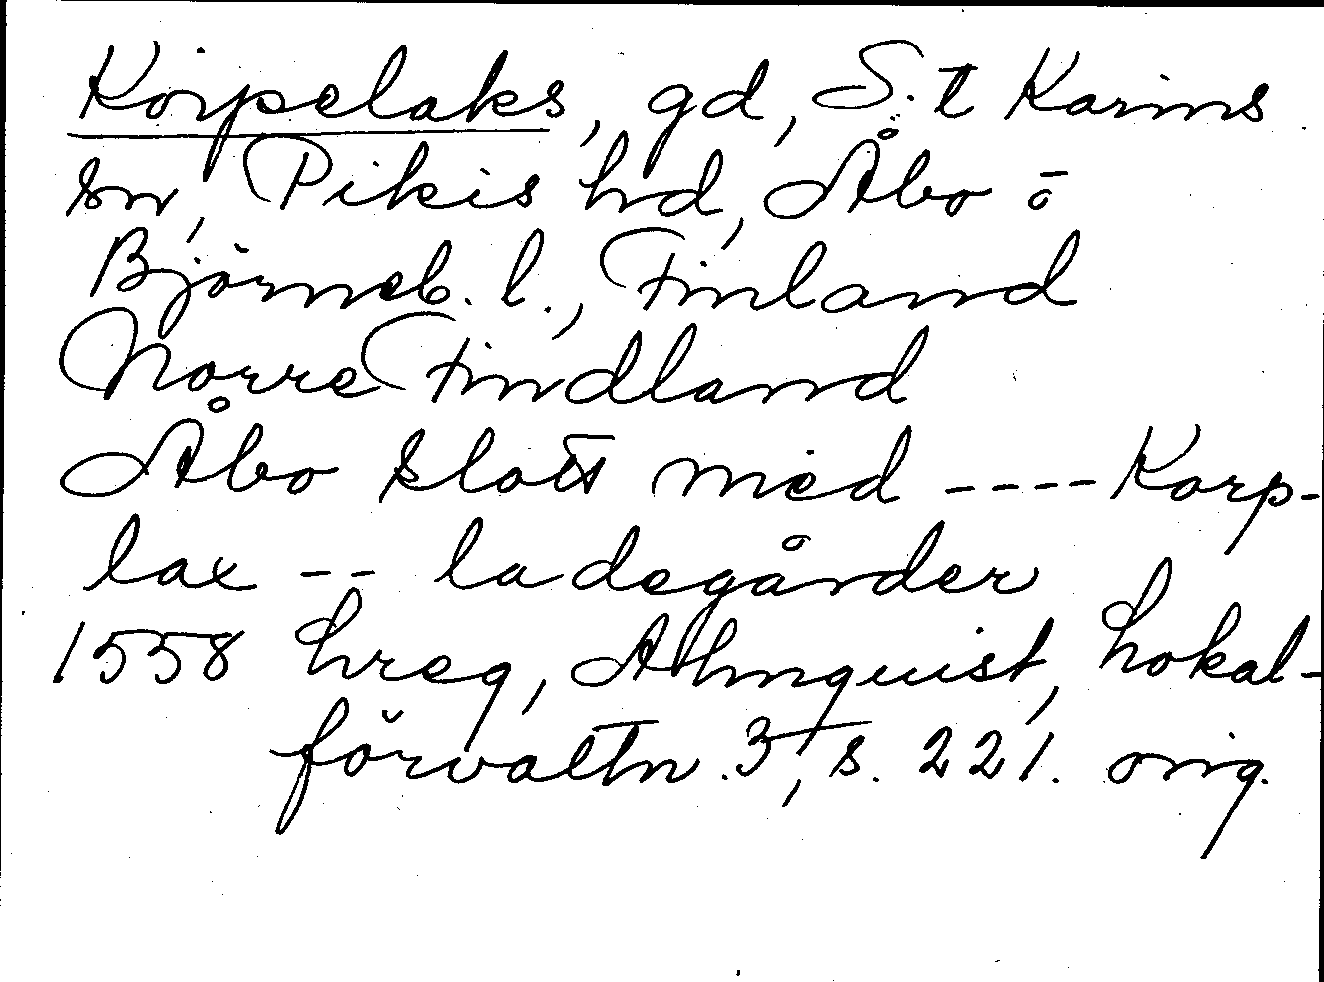 Korpelaks, gd, S:t Karins
sn, Pikis hd, Åbo o
Björneb. l., Finland
Norre Findland
Åbo slott med ---- Korp-
lax -- ladegårder
1558 hreg, Almquist, Lokal-
förvaltn. 3, s. 221. orig.